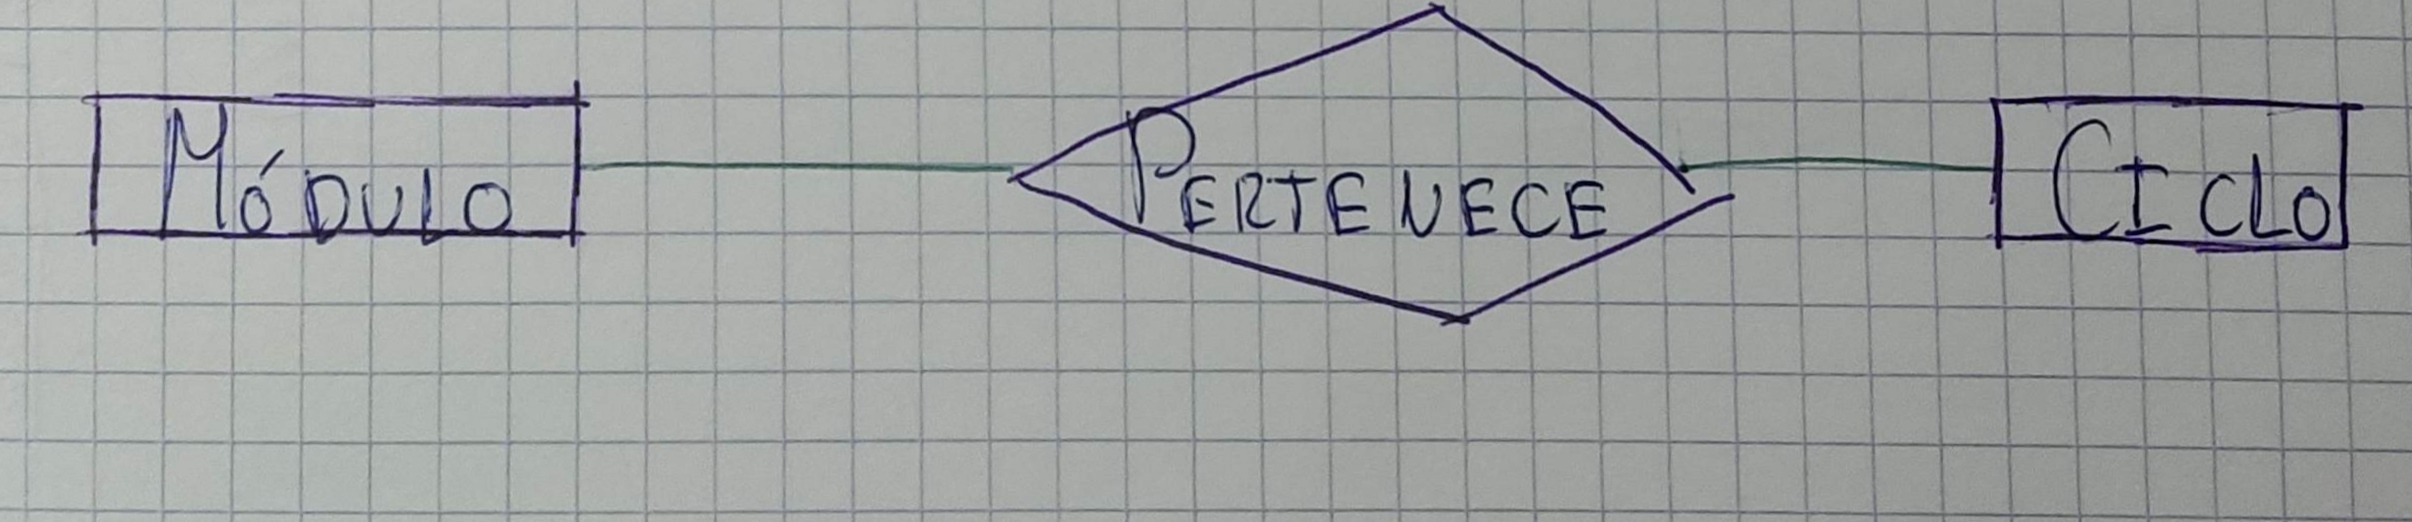 MÓDULO
PERTENECE
CICLO